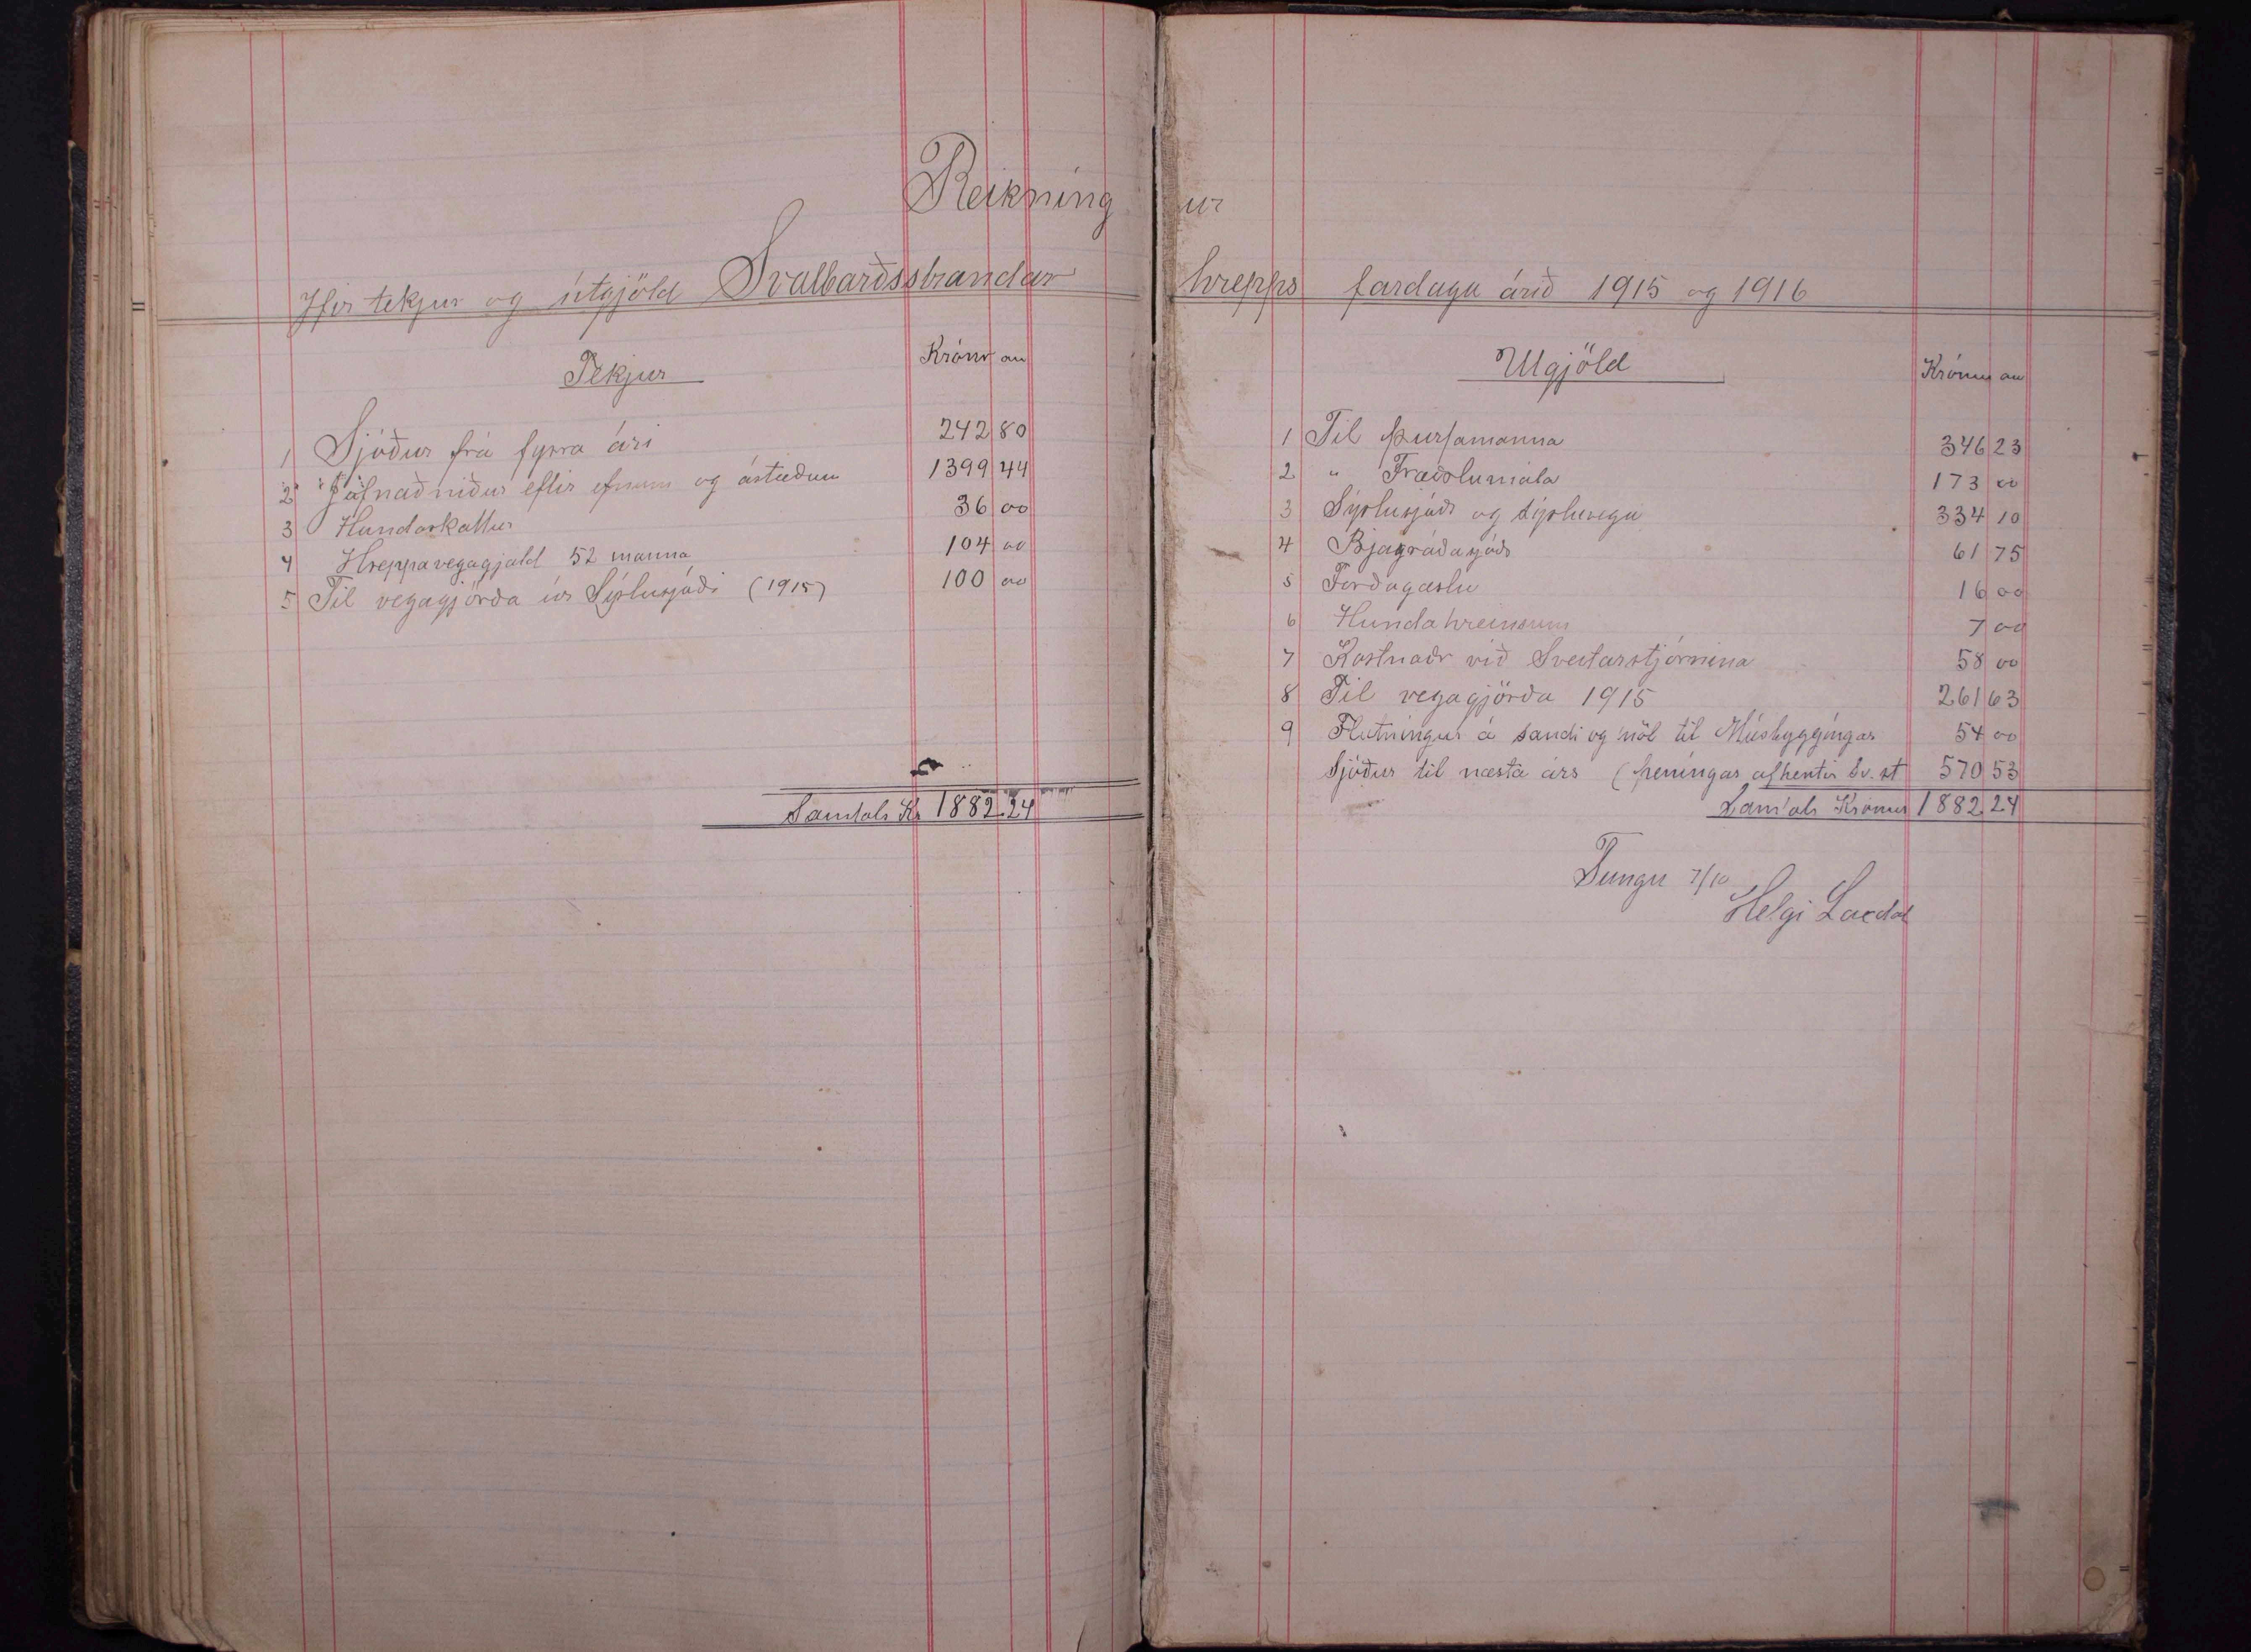 Reikningur
Yfir tekjur og útgjöld Svalbarðsstrandar hrepps fardaga árið 1915 og 1916
Tekjur Krónr au
1 Sjóður frá fyrra ári 242 80
2 Jafnað niður eftir efnum og ástæðum 1399 44
3 Hundaskattur 36 00
4 Hreppavegagjald 52 manna 104 00
5 Til vegagjörða úr Sýslusjóði (1915) 100 00
Samtals Kr 1882 24
Utgjöld Krónur au
1 Til þurfamanna 346 23
2 " Fræðslumála 173 00
3 Sýslusjóðs og sýsluvega 334 10
4 Bjagráðasjóðs 61 75
5 Forðagæslu 16 00
6 Hundahreinsun 7 00
7 Kostnaðr við Sveitarstjórnina 58 00
8 Til vegagjörða 1915 261 63
9 Flutningur á sandi og möl til Húsbyggingar 54 00
Sjóður til næsta árs (peningar afhentir Sv.st 570 53
Samtals Krónur 1882 24
Tungu 7/10
Helgi Laxdal